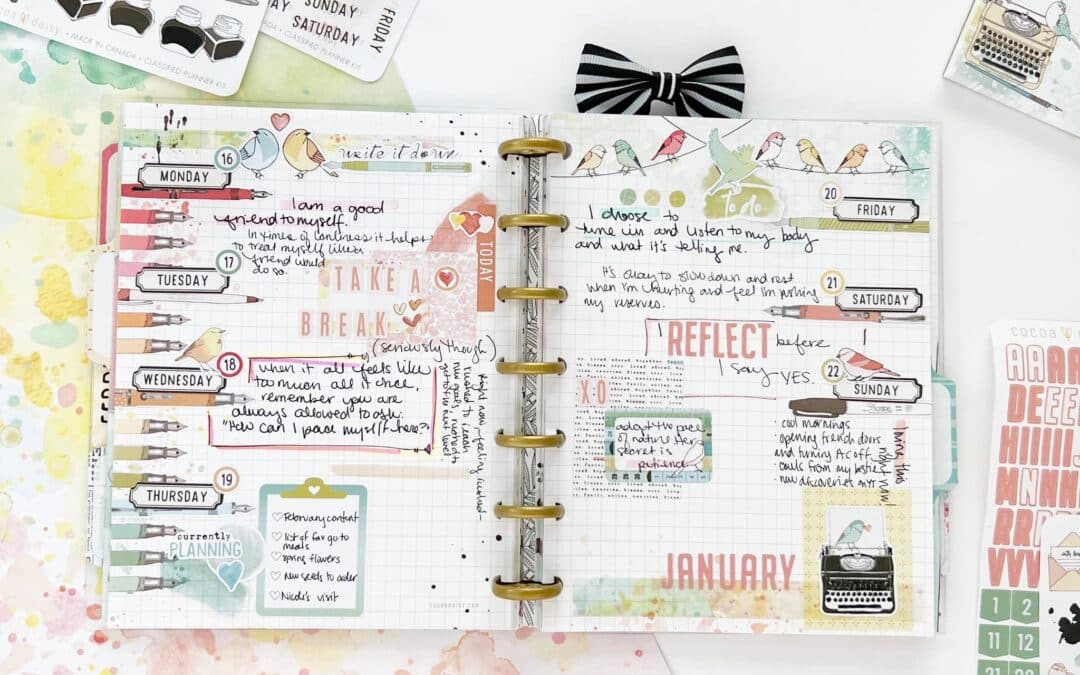 cocoa daisy • MADE IN CANADA • CLASSIFIED PLANNER KIT
SUNDAY
SATURDAY
FRIDAY
CANADA • CLASSIFIED PLANNER KIT
16
MONDAY
write it down
I am a good
friend to myself.
In times of it helps
to treat myself like a
friend would
do so.
17
TUESDAY
TODAY
TAKE A
BREAK
(seriously though)
18
WEDNESDAY
when it all feels like
too much all at once,
remember you are
always allowed to ask:
"How can I pace myself here?"
Right now - feeling rushed -
rushed to reach
new goals, rushed to
get to the next level
19
THURSDAY
currently
PLANNING
February content
list of far go to
meals
spring flowers
new seeds to order
Nicole's visit
COCOADAISY.COM
to do
20
FRIDAY
I choose to
tune in and listen to my body
and what it's telling me.
It's okay to slow down and rest
when I'm hurting and feel I'm pushing
my reserves.
21
SATURDAY
I REFLECT before
I say YES.
22
SUNDAY
XO
adopt the pace
of nature her
secret is
patience
cool mornings
opening french doors
and turning A/C off
calls from my besties
new discoveries
right now!
JANUARY
COCOA
AAA
DEEE
HIIII
NNN
RRR
VVV
1 2
11 12